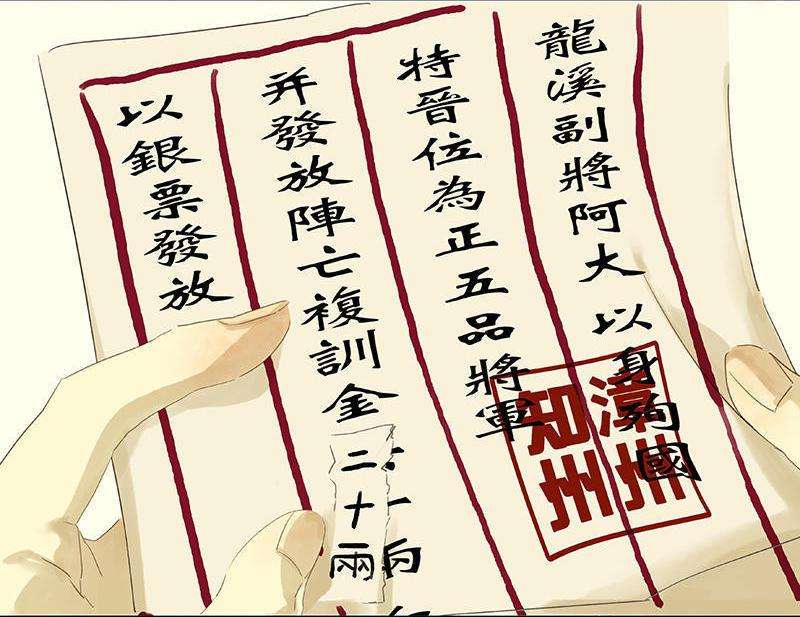 龍溪副將阿大以身殉國
特晉位為正五品將軍
并發放陣亡複訓金二十兩
一百
以銀票發放
漳州
知州